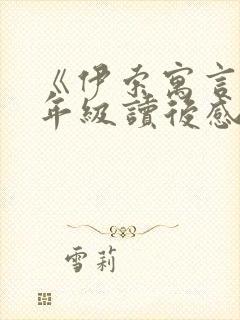 《伊索寓言
年級讀後感
雪莉